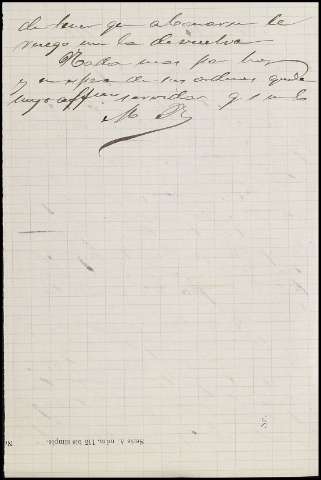 de tener que abonarse le
ruego me la devuelva
Nada mas por hoy
y en espera de sus ordenes queda
suyo affmo servidor q s m b
M R
Serie A núm. 115 bis simple.